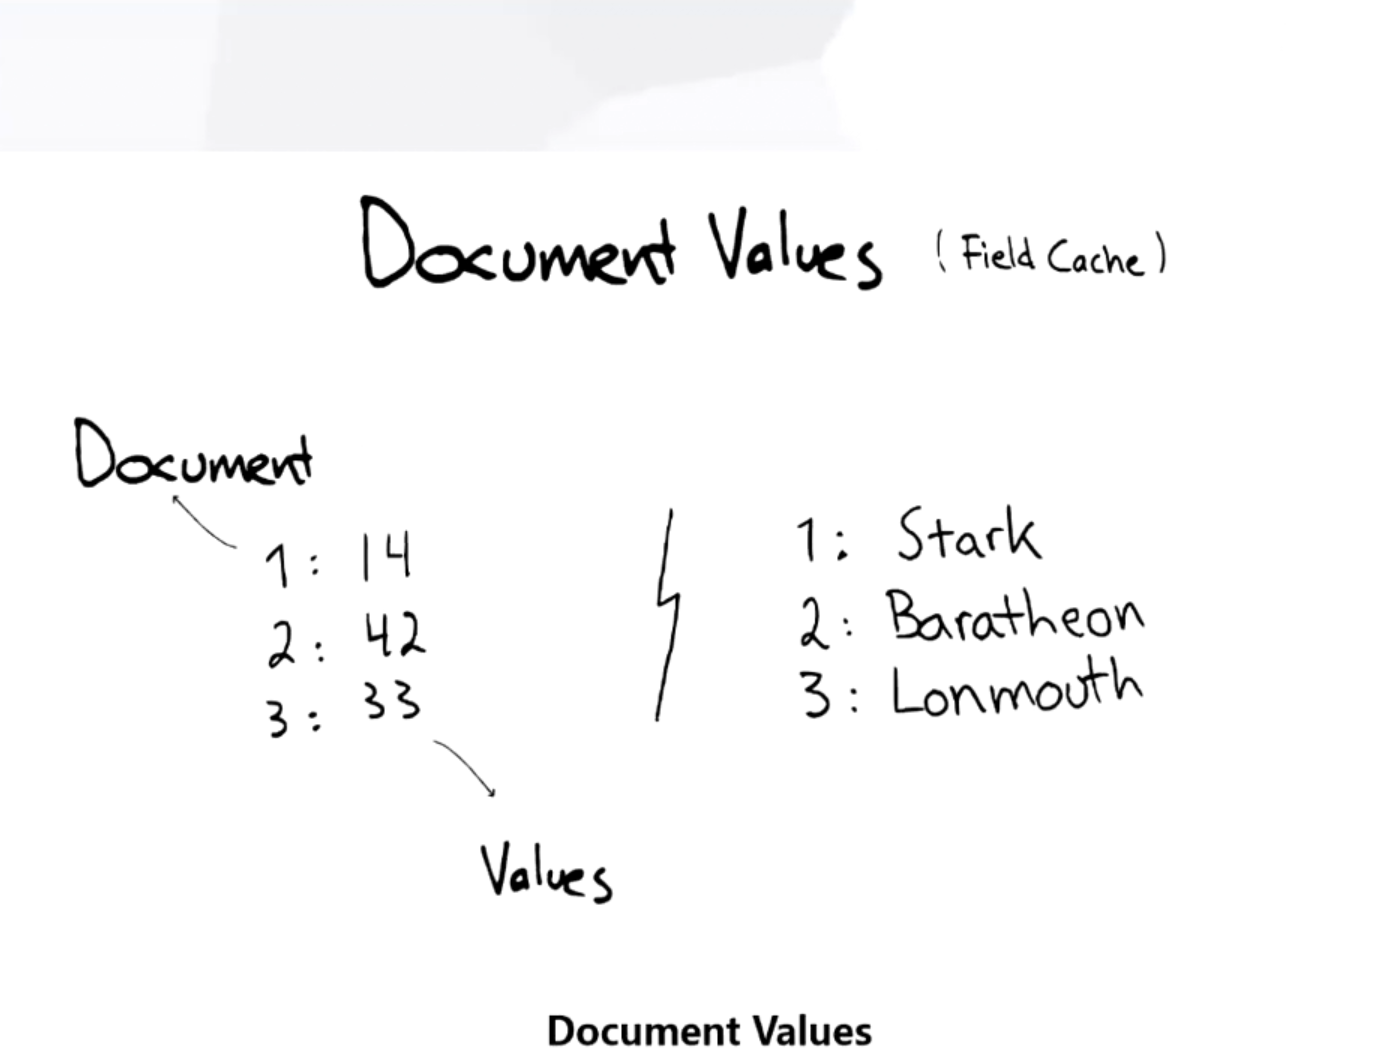 Document Values (Field Cache)
Document
1: 14
2: 42
3: 33
1: Stark
2: Baratheon
3: Lonmouth
Values
Document Values